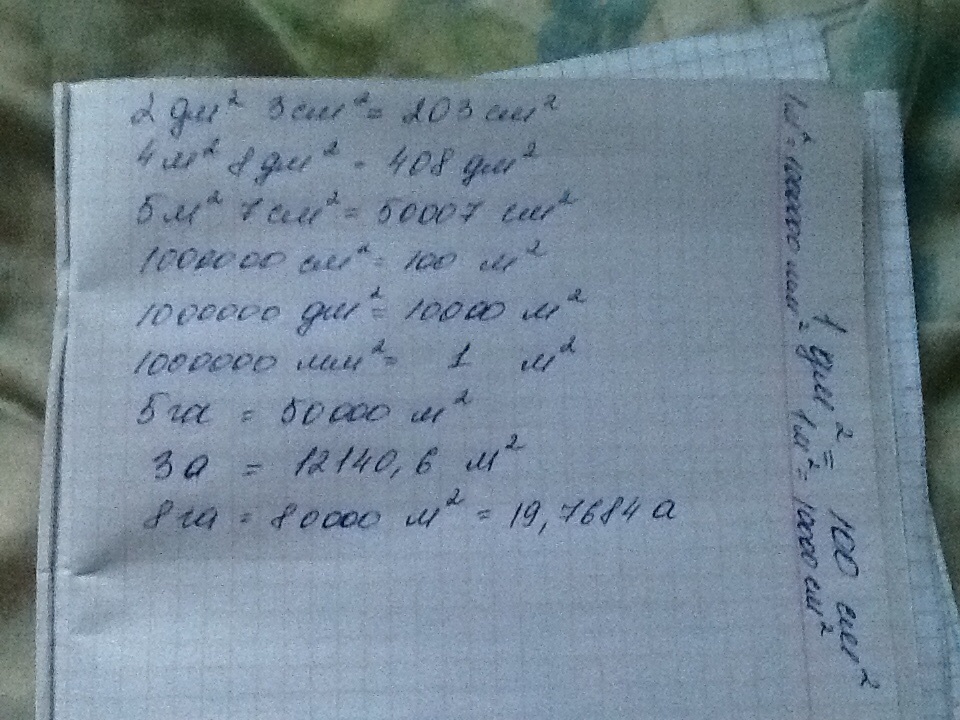 2 дм² 3 см² = 203 см²
4 м² 8 дм² = 408 дм²
5 м² 7 см² = 50007 см²
1000000 см² = 100 м²
1000000 дм² = 10000 м²
1000000 мм² = 1 м²
5 га = 50000 м²
3а = 12140,6 м²
8 га = 80000 м² = 19,7684 а
1 дм² = 100 см²
1 м² = 1000000 мм²
1 м² = 10000 см²